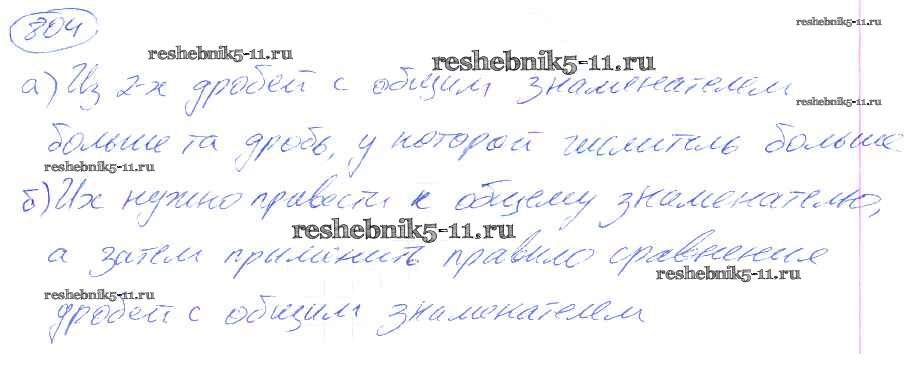 804
reshebnik5-11.ru
reshebnik5-11.ru
reshebnik5-11.ru
а) Из 2-х дробей с общим знаменателем
reshebnik5-11.ru
больше та дробь, у которой числитель больше.
reshebnik5-11.ru
б) Их нужно привести к общему знаменателю,
reshebnik5-11.ru
а затем применить правило сравнения
reshebnik5-11.ru
reshebnik5-11.ru
дробей с общим знаменателем
reshebnik5-11.ru